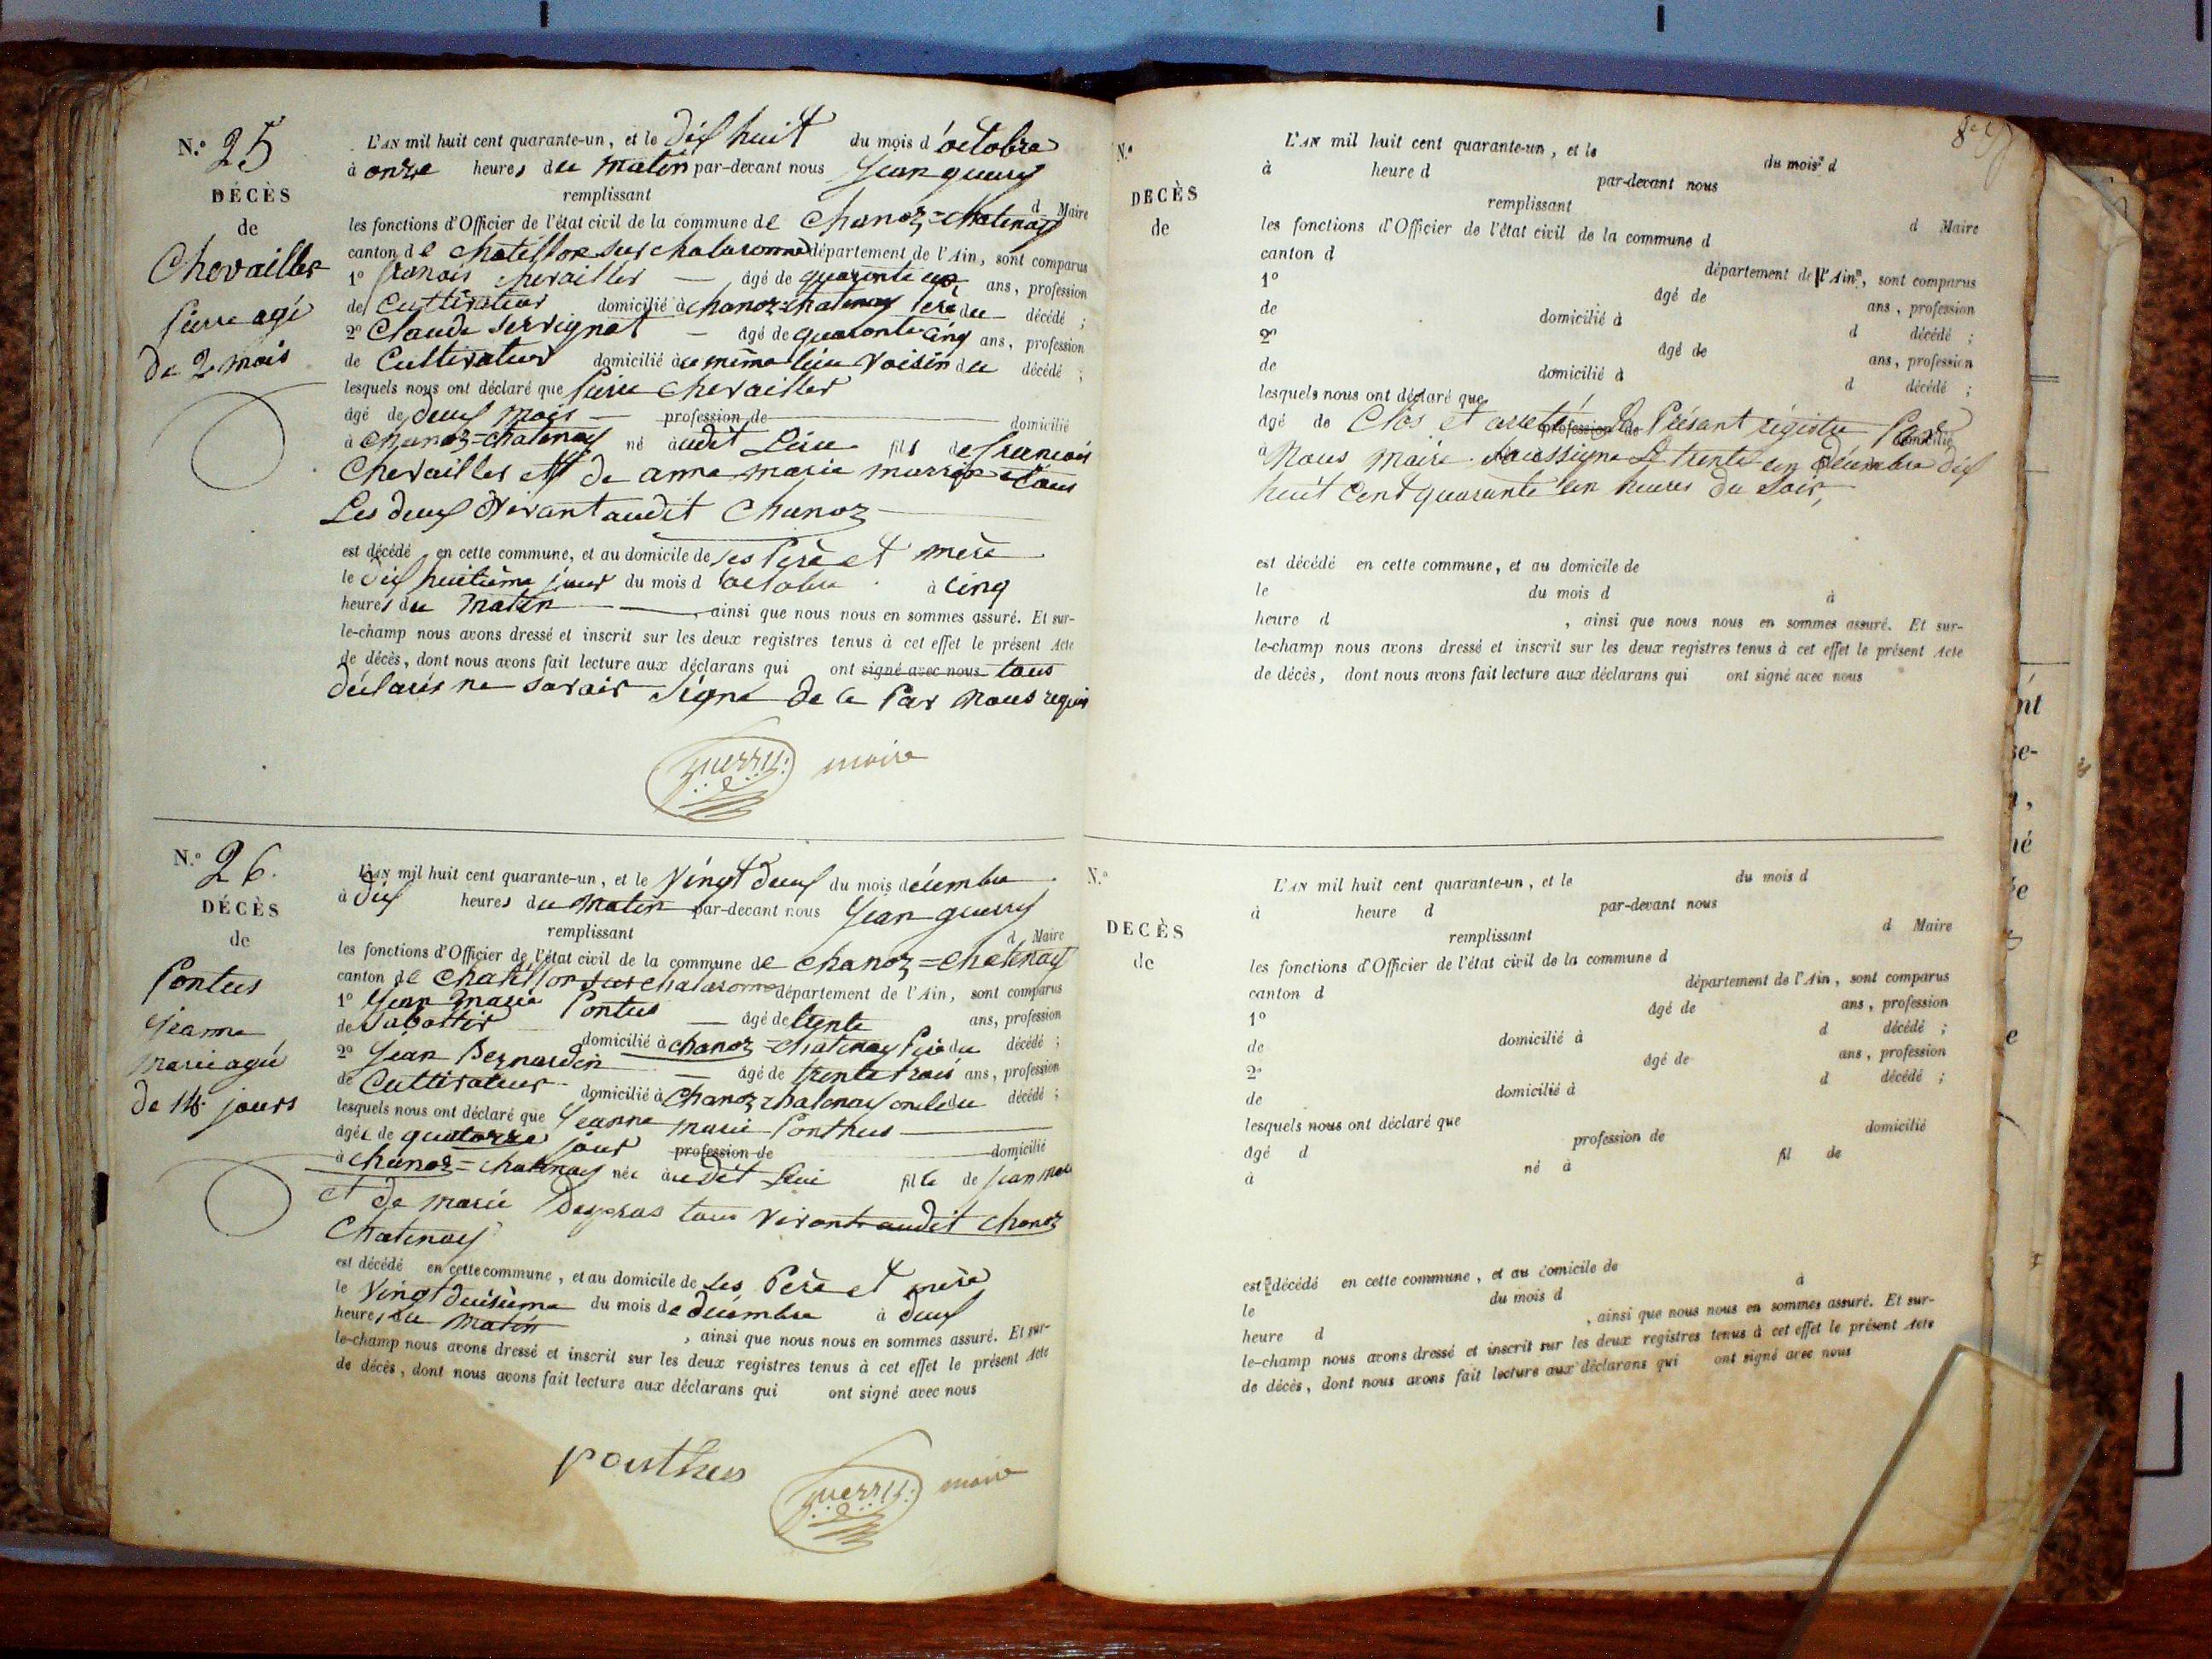 N.º 25
DÉCÈS
de
Chevailler
Pierre agé
de 2 mois
L'AN mil huit cent quarante-un, et le dix huit du mois d'octobre
à onze heures du matin par-devant nous Jean guerry
remplissant d Maire
les fonctions d'Officier de l'état civil de la commune de Chanoz=Chatenay
canton de Chatillon sur chalaronne département de l'Ain, sont comparus
1º françois chevailler — âgé de quarante un ans, profession
de Cultivateur domicilié à chanoz=chatenay Père du décédé ;
2º Claude Servignat — âgé de quaronte cinq ans, profession
de Cultivateur domicilié au même lieu voisin du décédé ;
lesquels nous ont déclaré que Pierre chevailler
âgé de deux mois — profession de domicilié
à chanoz=chatenay né audit Lieu fils de francois
Chevailler et de anne marie tous
Les deux vivant audit Chanoz
est décédé en cette commune, et au domicile de ses Père et mère
le dix huitième jour du mois d octobre à cinq
heures du matin , ainsi que nous nous en sommes assuré. Et sur-
le-champ nous avons dressé et inscrit sur les deux registres tenus à cet effet le présent Acte
de décès, dont nous avons fait lecture aux déclarans qui ont signé avec nous tous
déclarés ne savoir signé de ce Par nous requis
guerry maire
N.º 26.
DÉCÈS
de
Pontus
Jeanne
marie agée
de 14 jours
L'AN mil huit cent quarante-un, et le vingt deux du mois décembre
à dix heures du matin par-devant nous Jean guerry
remplissant d Maire
les fonctions d'Officier de l'état civil de la commune de chanoz=chatenay
canton de chatillon sur chalaronne département de l'Ain, sont comparus
1º Jean marie Pontus — âgé de trente ans, profession
de Sabottier domicilié à chanoz=chatenay Père du décédé ;
2º Jean Bernardin — âgé de trente trois ans, profession
de Cultivateur domicilié à Chanoz chatenay oncle du décédé ;
lesquels nous ont déclaré que Jeanne marie Ponthus
âgée de quatorze jour profession de domicilié
à chanoz=chatenay née audit Lieu fille de Jean marie
et de marie Desgras tous vivant audit chanoz
Chatenay
est décédé en cette commune, et au domicile de ses Père et mère
le vingt deuxième du mois de décembre à deux
heures du matin , ainsi que nous nous en sommes assuré. Et sur-
le-champ nous avons dressé et inscrit sur les deux registres tenus à cet effet le présent Acte
de décès, dont nous avons fait lecture aux déclarans qui ont signé avec nous
ponthus guerry maire
N.º
DECÈS
de
L'AN mil huit cent quarante-un, et le du mois d
à heure d par-devant nous
remplissant d Maire
les fonctions d'Officier de l'état civil de la commune d
canton d département de l'Ain, sont comparus
1º âgé de ans, profession
de domicilié à d décédé ;
2º âgé de ans, profession
de domicilié à d décédé ;
lesquels nous ont déclaré que
âgé de Clos et arrêté profession de Le Présant régistre Par domicilié
à Nous maire soussigné Le trente un décembre dix
huit Cent quarante un heures du soir,
est décédé en cette commune, et au domicile de
le du mois d à
heure d , ainsi que nous nous en sommes assuré. Et sur-
le-champ nous avons dressé et inscrit sur les deux registres tenus à cet effet le présent Acte
de décès, dont nous avons fait lecture aux déclarans qui ont signé avec nous
N.º
DECÈS
de
L'AN mil huit cent quarante-un, et le du mois d
à heure d par-devant nous
remplissant d Maire
les fonctions d'Officier de l'état civil de la commune d
canton d département de l'Ain, sont comparus
1º âgé de ans, profession
de domicilié à d décédé ;
2º âgé de ans, profession
de domicilié à d décédé ;
lesquels nous ont déclaré que
âgé d profession de domicilié
à né à fil de
est décédé en cette commune, et au domicile de
le du mois d à
heure d , ainsi que nous nous en sommes assuré. Et sur-
le-champ nous avons dressé et inscrit sur les deux registres tenus à cet effet le présent Acte
de décès, dont nous avons fait lecture aux déclarans qui ont signé avec nous